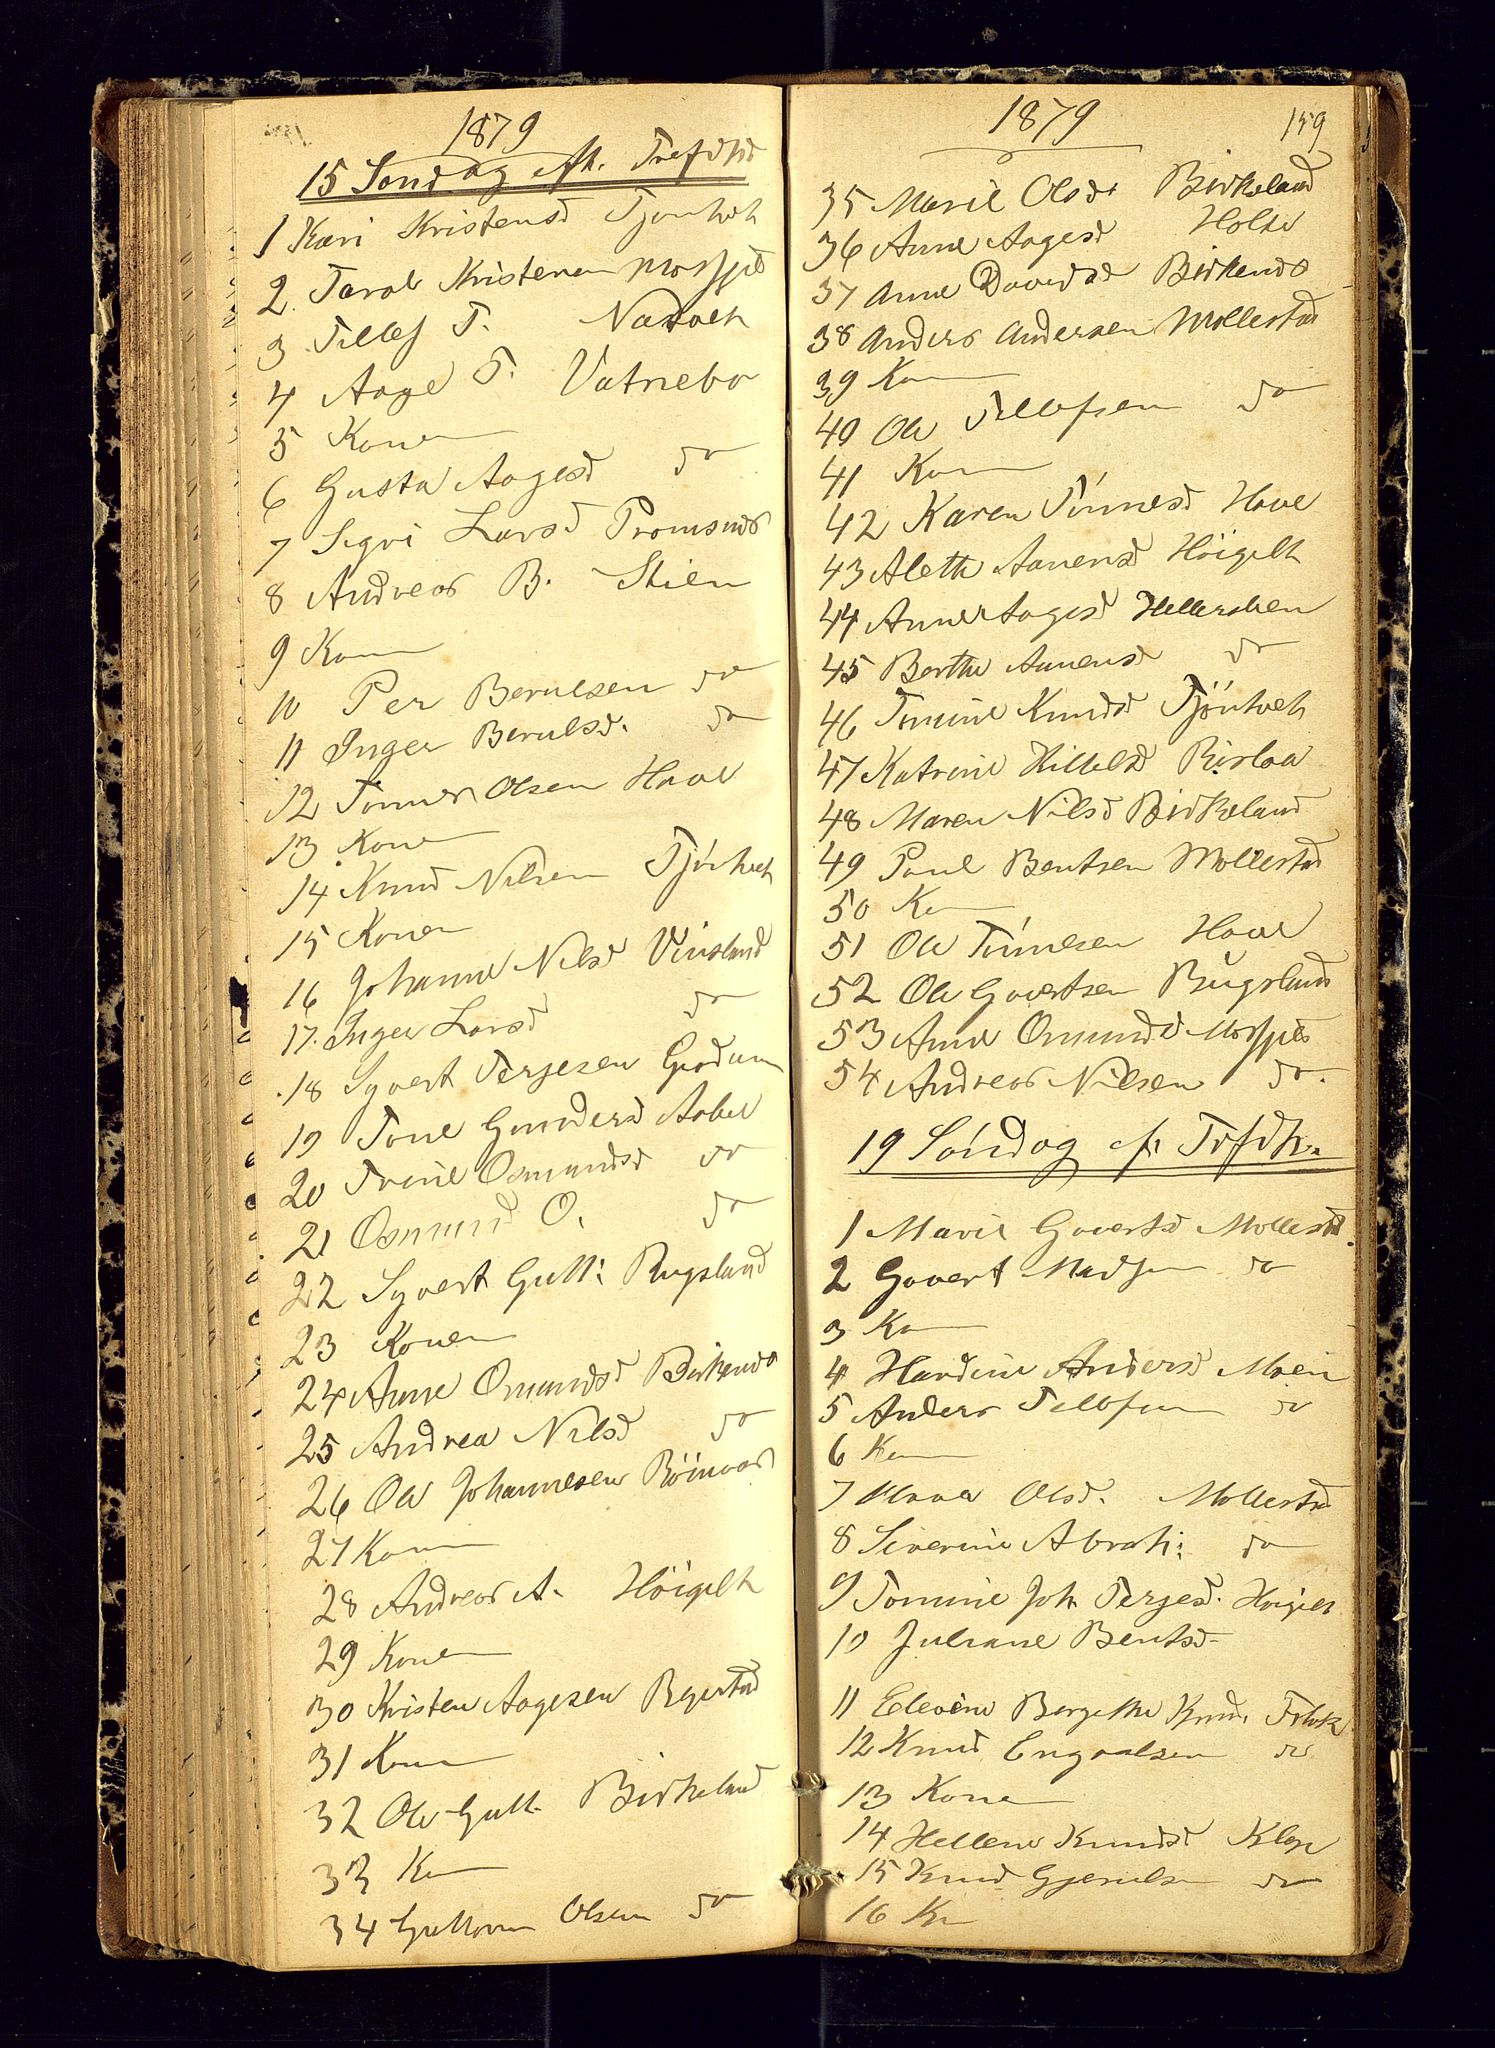 1879
15 Søndag eft. Trefdhd
1 Kari Kristensd Tjönhvt
2 Taral Kristensen Mosfjel
3 Tellef T.
4 Aage T. Vatnebo
5 Konen
6 Gusta Aagesd do
7 Sigri Larsd
8 Andreas B. Stien
9 Kon
10 Per Berulsen do
11 Inger Berulsd. do
12 Tønnes Olsen Have
13 Kone
14 Knud Nilsen Tjönhvt
15 Konen
16 Johanne Nilsd Vinsland
17. Inger Larsd do
18 Syvert Terjesen Grødum
19 Tone Gundersd Aabel
20 Trine Osmundsd do
21 Osmund O. do
22 Syvert Gutt: Rugsland
23 Konen
24 Anne Omundsd Birkenes
25 Andrea Nilsd do
26 Ole Johannesen
27 Kon
28 Andreas A. Höigilt
29 Konen
30 Kristen Aagesen
31 Kon
32 Ole Gutt. Birkeland
33 Kn
34 Guttorm Olsen do
1879
159
35 Marie Olsd Birkeland
36 Anne Aagesd
37 Anne Davidsd Birkenes
38 Anders Andersen Mollestad
39 Kon
40 Ole Tellefsen do
41 Kon
42 Karen Tönnesd Have
43 Alette Aanensd Höigilt
44 Anne Aagesd
45 Berthe Aanensd do
46 Tomine Knudsd Tjönhvt
47 Katrine Kittelsd
48 Maren Nilsd Birkeland
49 Poul Bentsen Mollestad
50 Kn
51 Ole Tönnesen Have
52 Ole Govertsen Rugsland
53 Anne Omundsd Mosfjel
54 Andreas Nilsen do.
19 Søndag ef: Trfdh.
1 Marie Govertsd Mollestad.
2 Govert Madsen do
3 Ko
4 Hardine Andersd Moen
5 Anders Tellefsen do
6 Kn
7 Olsd. Mollestad
8 Severine Abrah: do
9 Tomine Joh. Terjesd. Höigilt
10 Juliane Bentsd
11 Elevine Bergithe Knud.
12 Knud Engvalsen do
13 Kone
14 Hellene Knudsd Klep
15 Knud Gjerulsen do
16 Kn